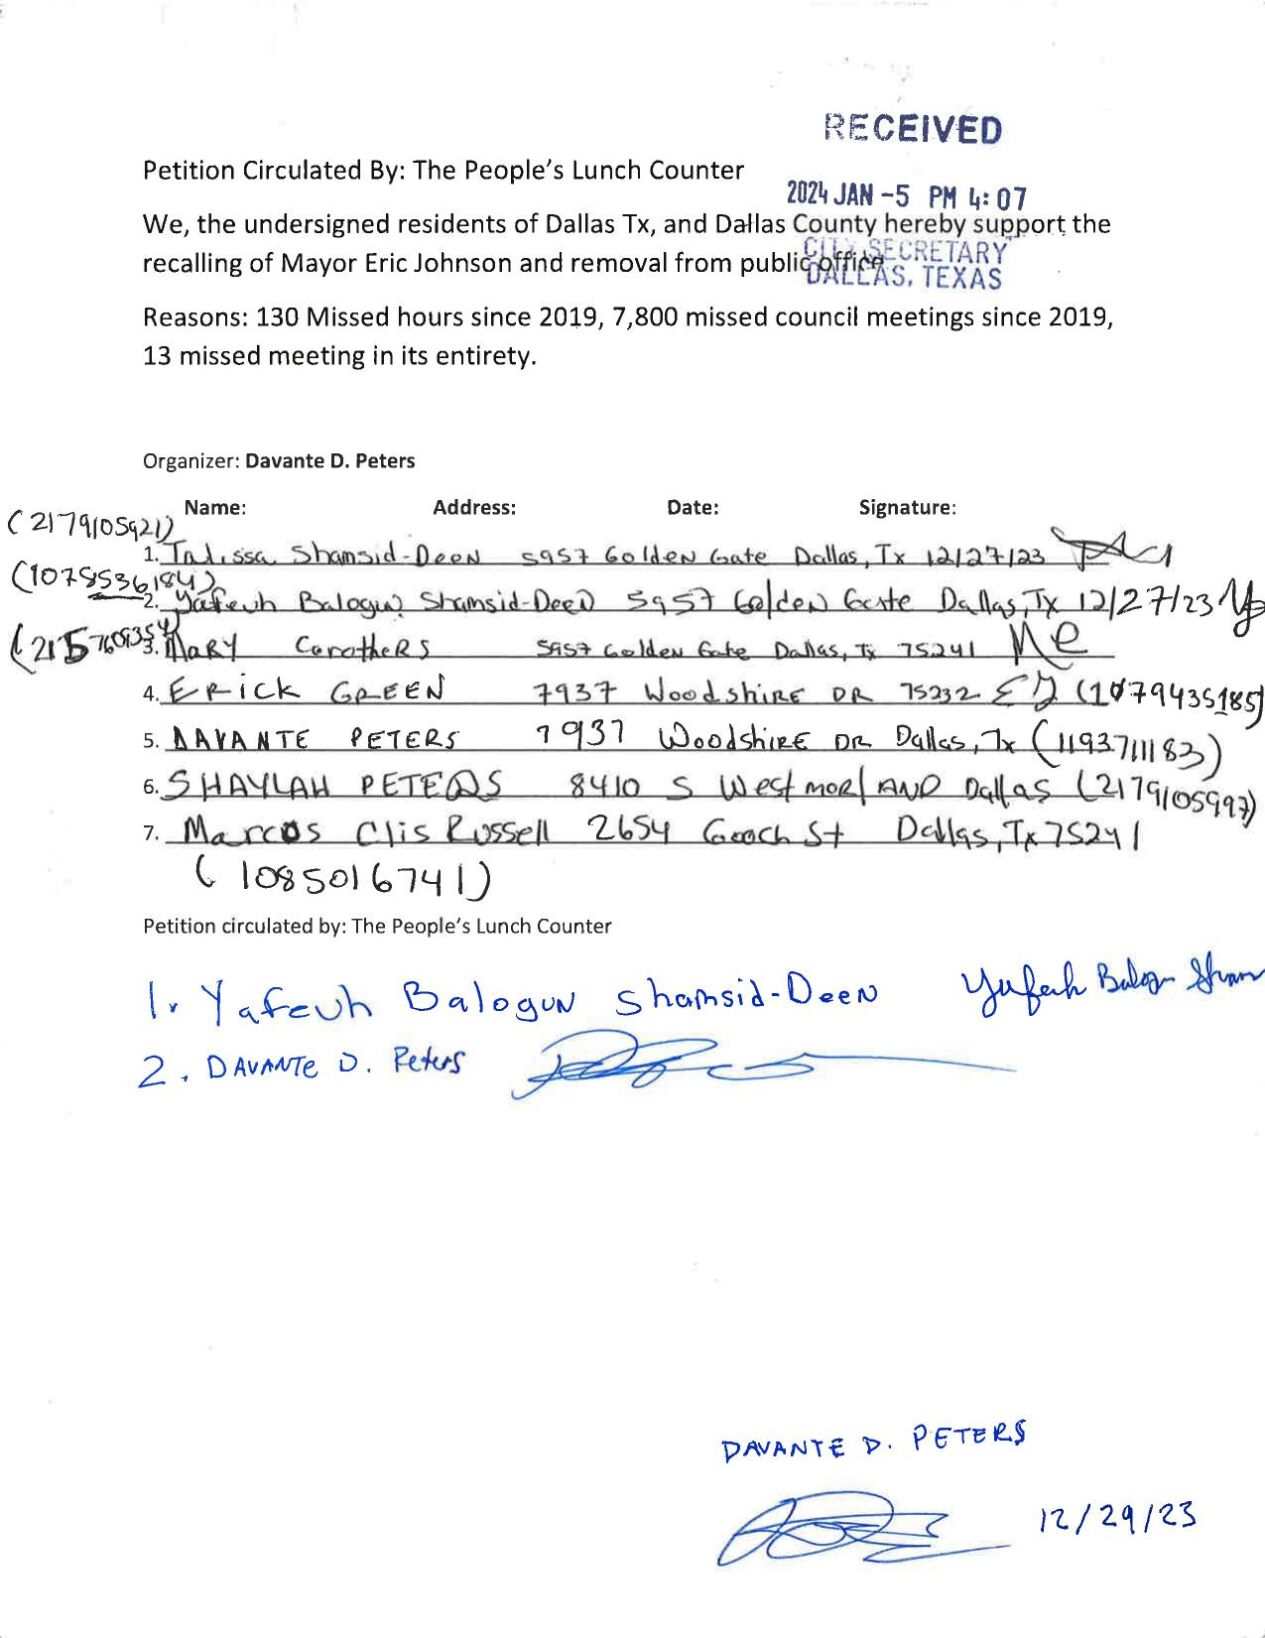 RECEIVED
Petition Circulated By: The People's Lunch Counter
2024 JAN -5 PM 4:07
We, the undersigned residents of Dallas Tx, and Dallas County hereby support the
recalling of Mayor Eric Johnson and removal from public office
CITY SECRETARY
DALLAS, TEXAS
Reasons: 130 Missed hours since 2019, 7,800 missed council meetings since 2019,
13 missed meeting in its entirety.
Organizer: Davante D. Peters
Name: Address: Date: Signature:
(2179105921)
1. Talissa Shamsid-Deen 5957 Golden Gate Dallas, Tx 12/27/23
(1078536184)
2. Yafeuh Balogun Shamsid-Deen 5957 Golden Gate Dallas, Tx 12/27/23
3. Mary Carothers 5957 Golden Gate Dallas, Tx 75241 MC
4. Erick GREEN 7937 Woodshire DR 75232 EG (1079435185)
5. DAVANTE PETERS 7937 Woodshire DR Dallas, Tx (1193711183)
6. SHAYLAH PETERS 8410 S WestmorlAND Dallas (2179105997)
7. Marcos Clis Russell 2654 Gooch St Dallas, Tx 75241
(1085016741)
Petition circulated by: The People's Lunch Counter
1. Yafeuh Balogun Shamsid-Deen Yafeuh Balogun Sham
2. DAVANTE D. Peters
DAVANTE D. PETERS
12/29/23